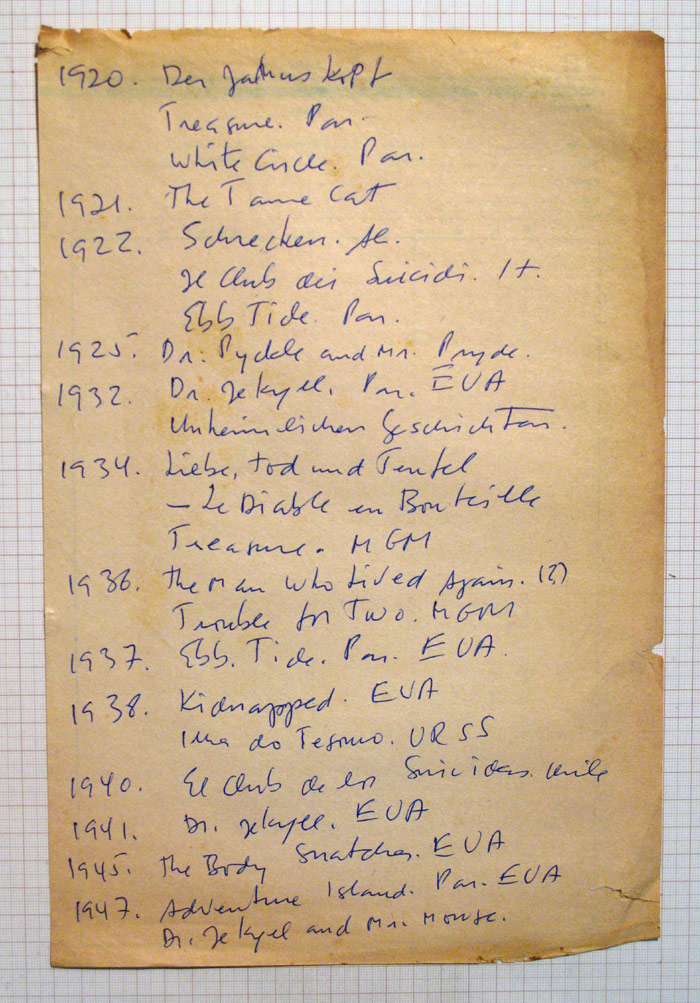 1920. Der Januskopf
Treasure. Par.
White Circle. Par.
1921. The Tame Cat
1922. Schrecken. Al.
Il Club dei Suicidi. It.
Ebb Tide. Par.
1925. Dr. Pyckle and Mr. Pryde.
1932. Dr. Jekyel. Par. EUA
Unheimlichen Geschichten.
1934. Liebe, Tod und Teufel
— Le Diable en Bouteille
Treasure. MGM
1936. The Man Who Lived Again. (?)
Trouble for Two. MGM
1937. Ebb. Tide. Par. EUA.
1938. Kidnapped. EUA
Ilha do Tesouro. URSS
1940. El Club de los Suicidas. Chile
1941. Dr. Jekyll. EUA
1945. The Body Snatcher. EUA
1947. Adventure Island. Par. EUA
Dr. Jekyel and Mr. Mouse.